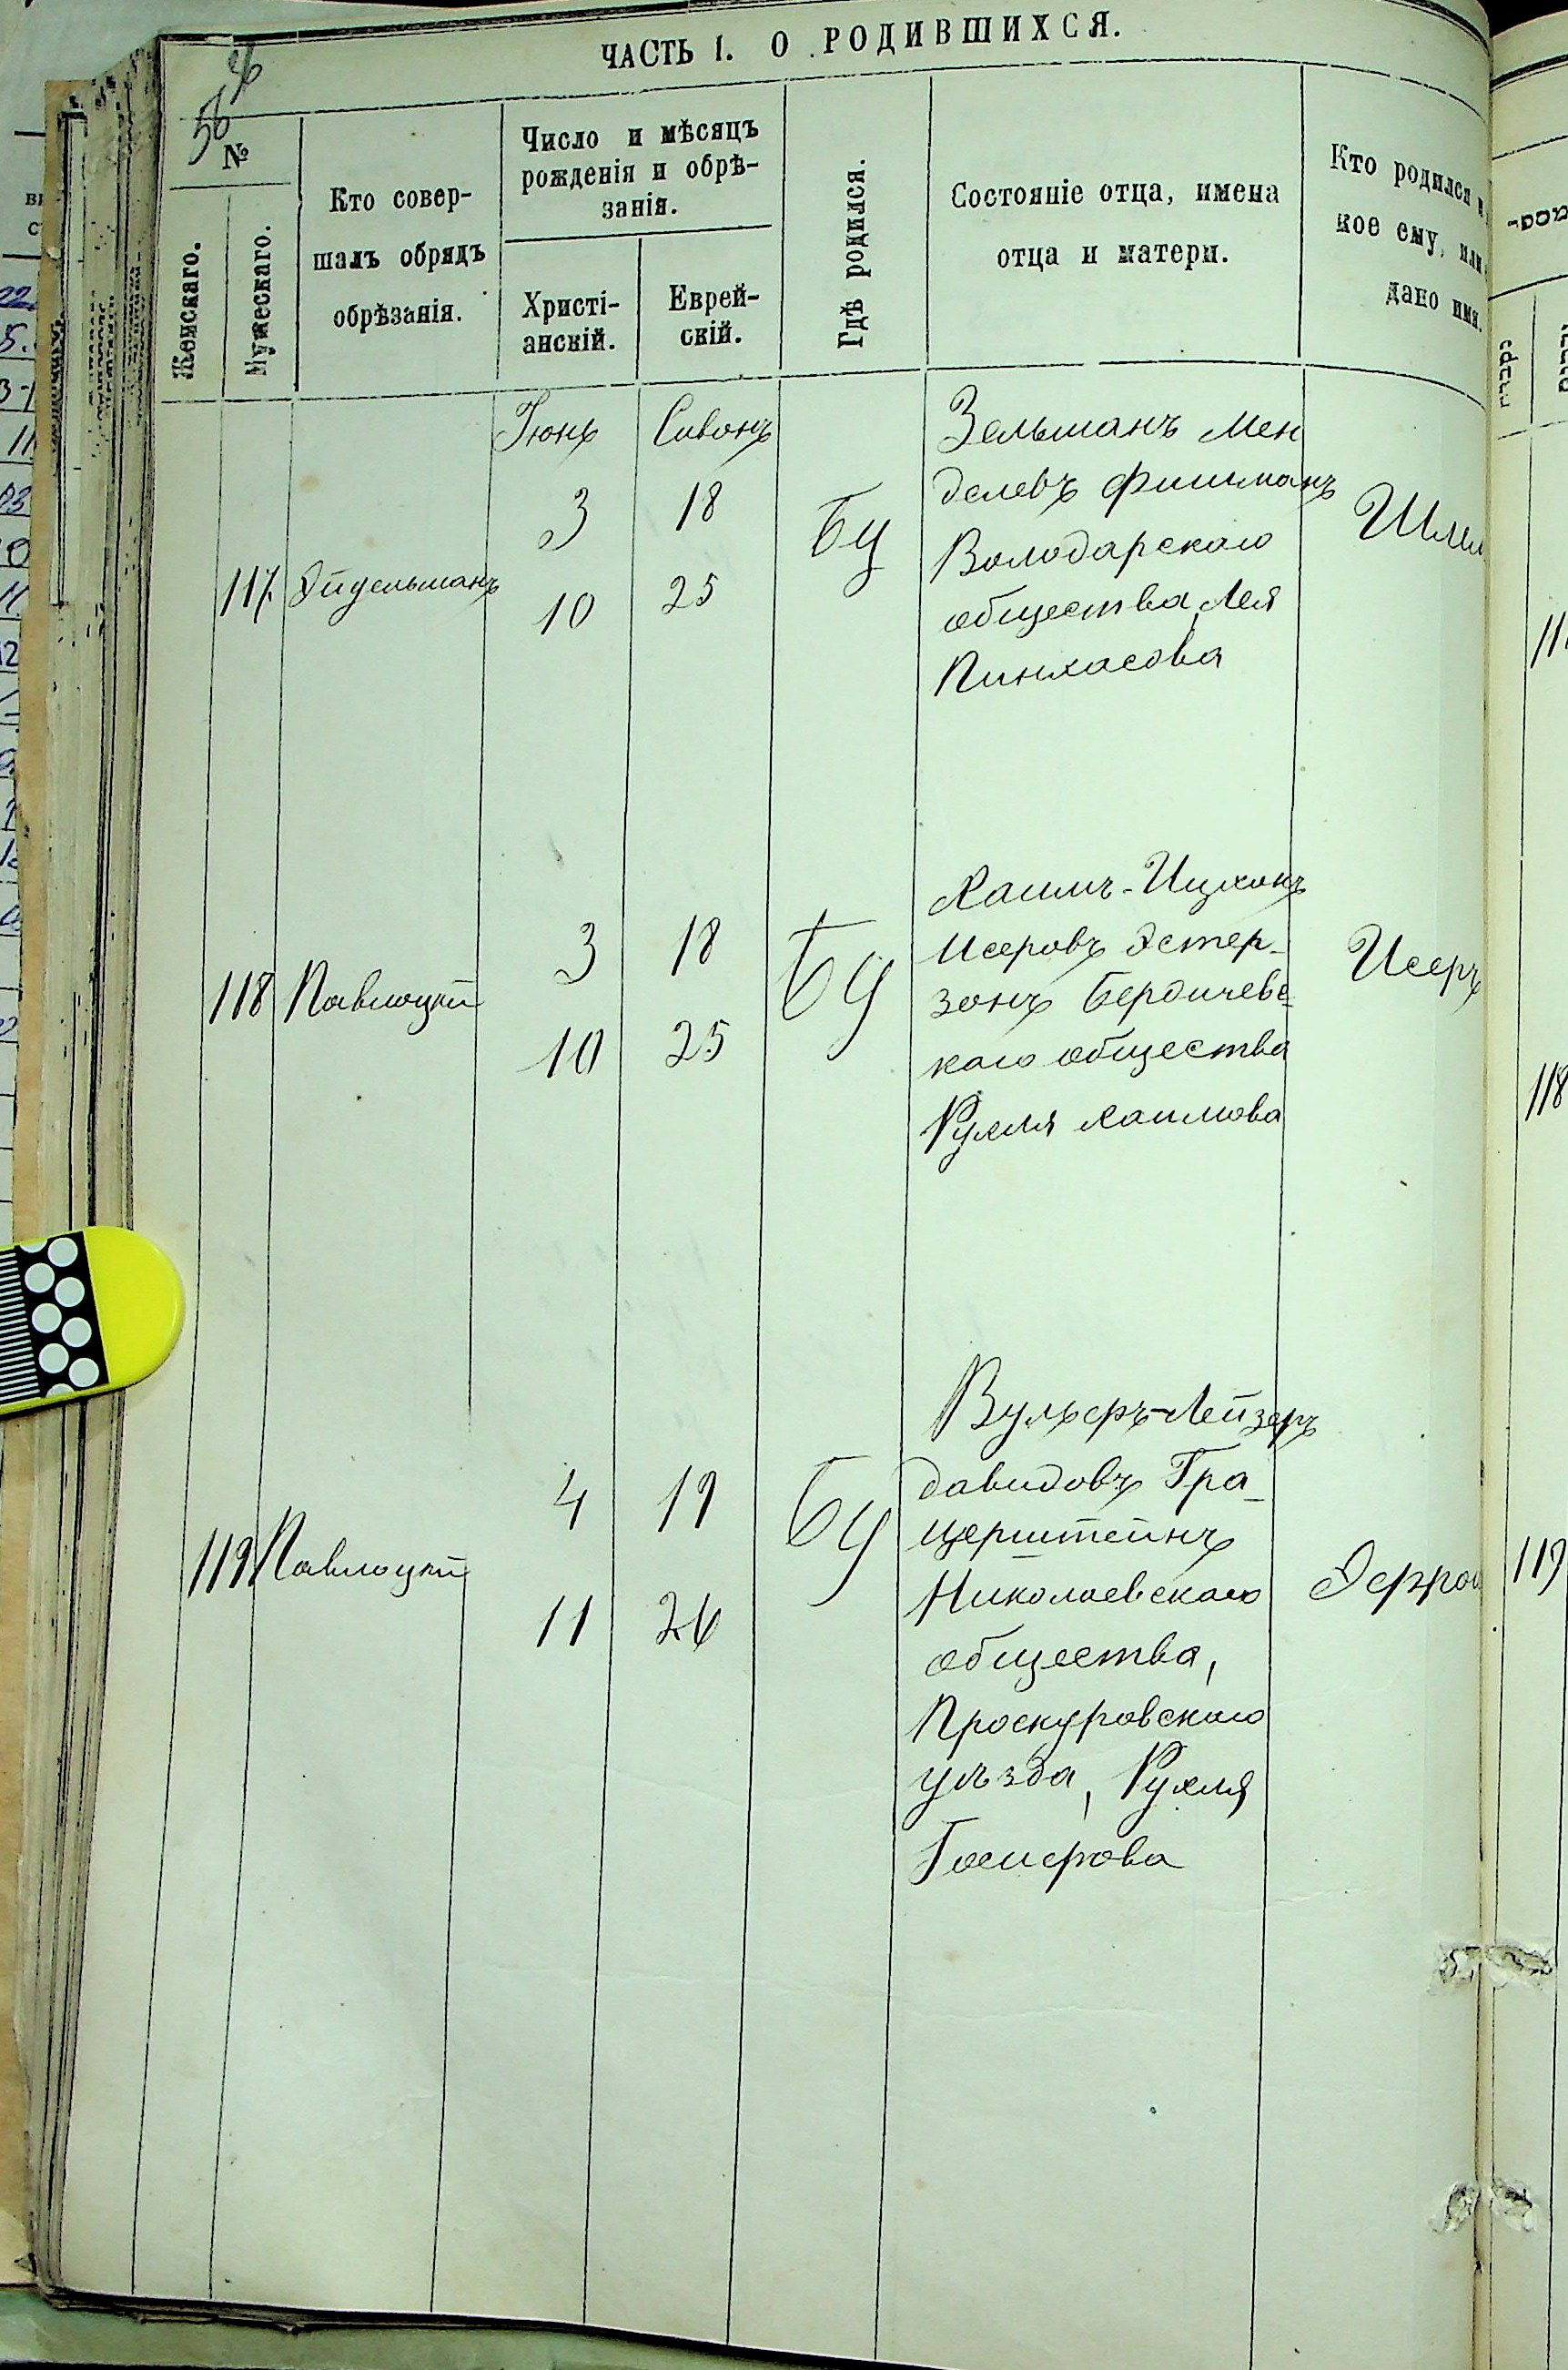 ЧАСТЬ I. О РОДИВШИХСЯ.
56
№
Женскаго.
Мужескаго.
Кто совер-
шалъ обрядъ
обрѣзанія.
Число и мѣсяцъ
рожденія и обрѣ-
занія.
Христі-
анскій.
Еврей-
скій.
Гдѣ родился.
Состояніе отца, имена
отца и матери.
Кто родился и
кое ему, или
дано имя.
Іюнь
Сивонъ
117.
Эйдельманъ
3
18
10
25
БЦ
Зельманъ Мен
делевъ Фишманъ
Володарскаго
общества, Лея
Пинхасова
Шлем
118
Павлоцкій
3
18
10
25
БЦ
Хаимъ-Ицхокъ
Исеровъ Эстер-
зонъ Бердичевс-
каго общества
Рухля Хаимова
Исеръ
119
Павлоцкій
4
19
11
26
БЦ
Вульфъ-Лейзеръ
Давидовъ Гра-
церштейнъ
Николаевскаго
общества,
Проскуровскаго
уѣзда, Рухля
Эфрои
118
119